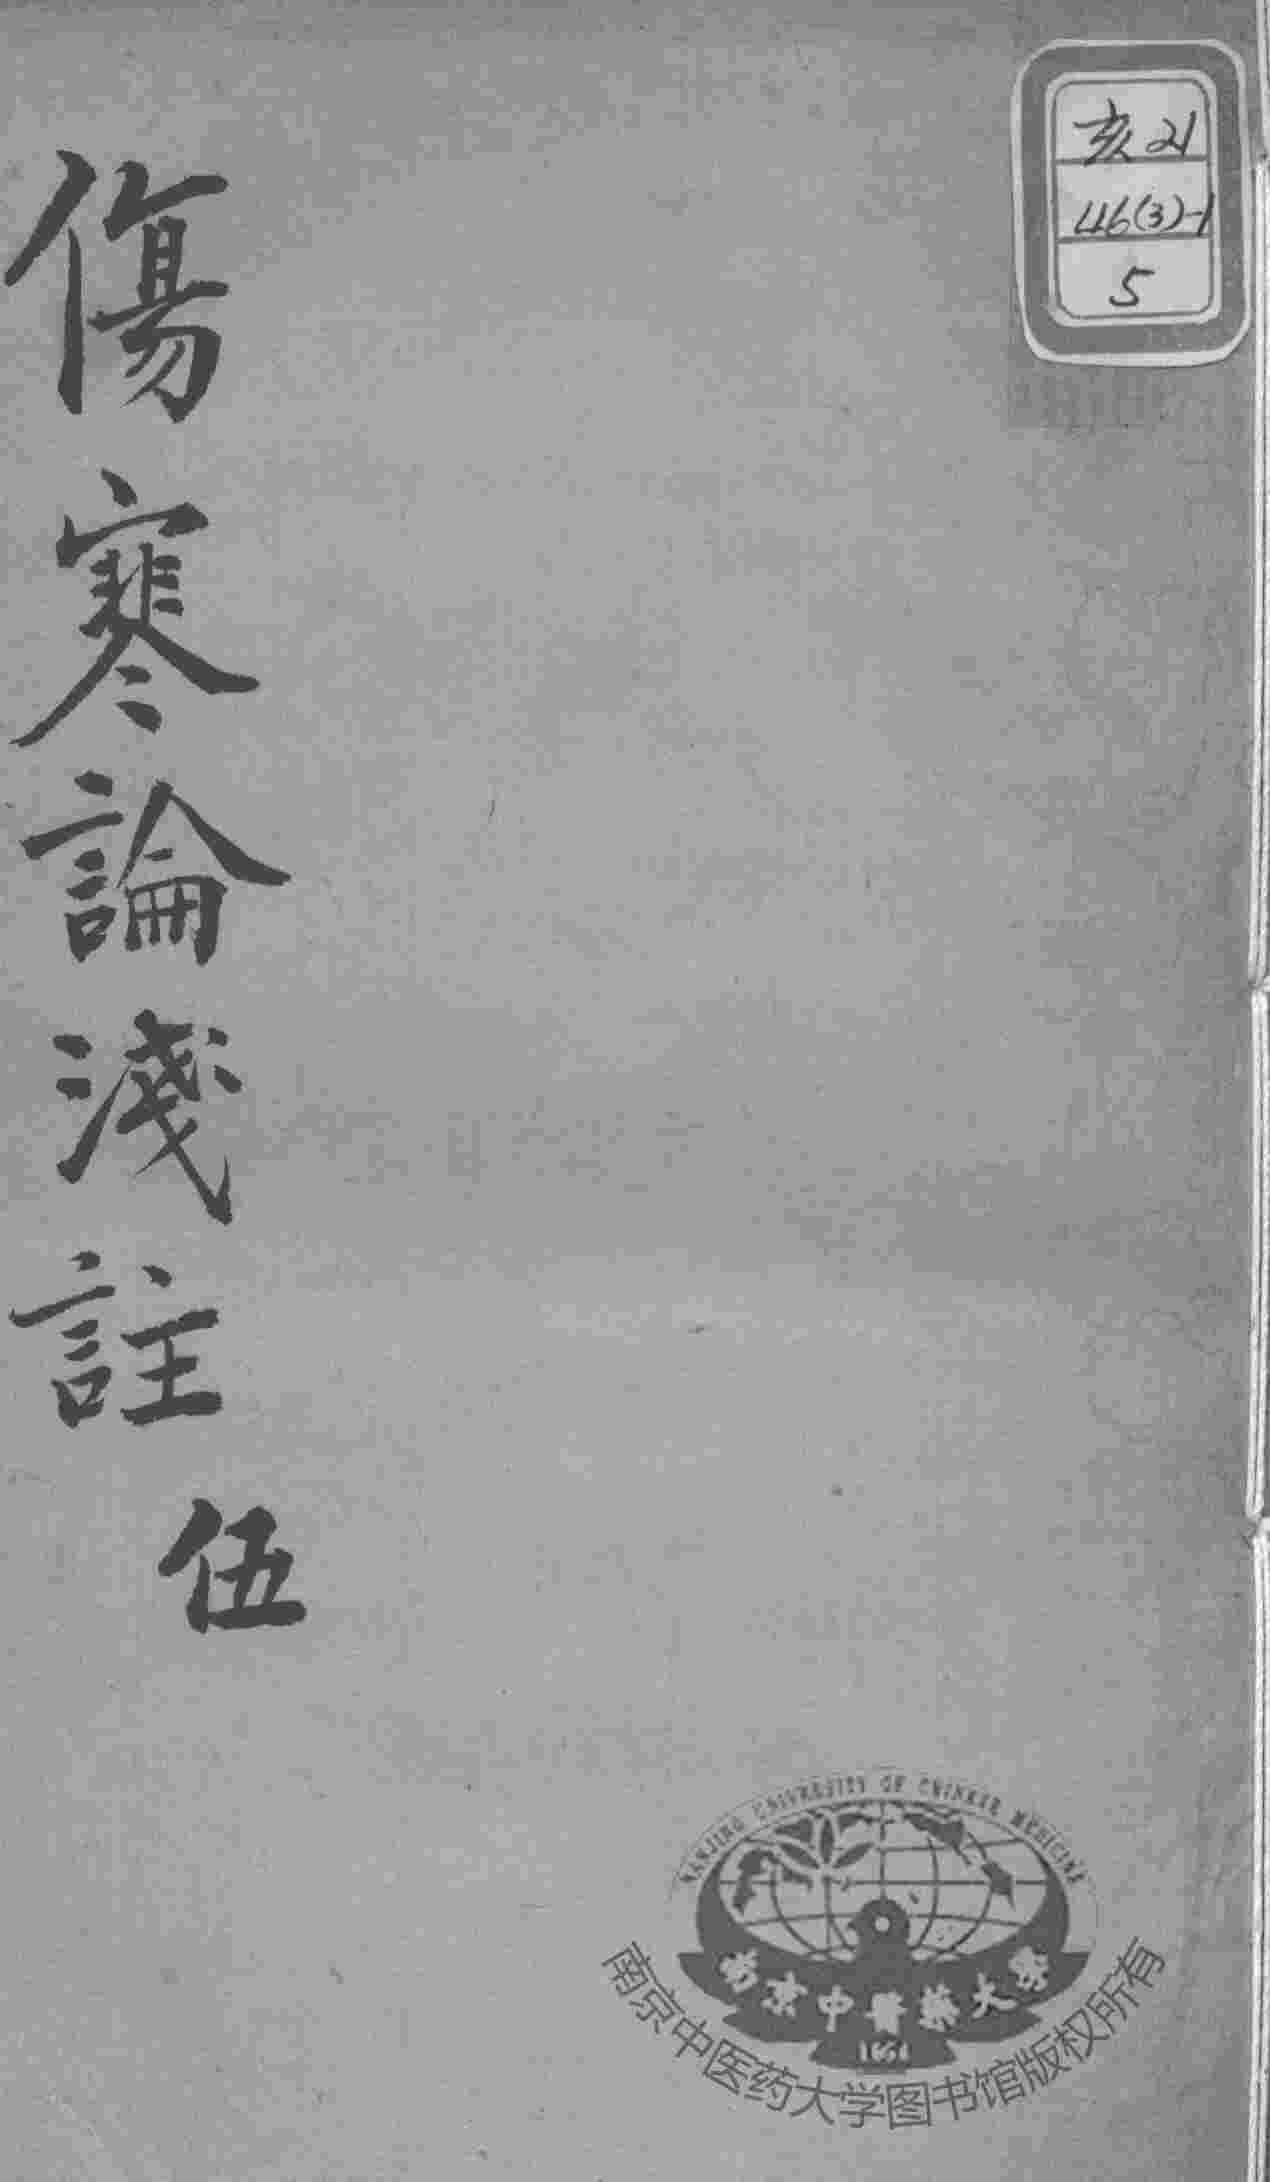 亥21
46(3)-1
5
傷寒論淺註
伍
NANJING UNIVERSITY OF CHINESE MEDICINE
南京中醫藥大學
1954
南京中医药大学图书馆版权所有